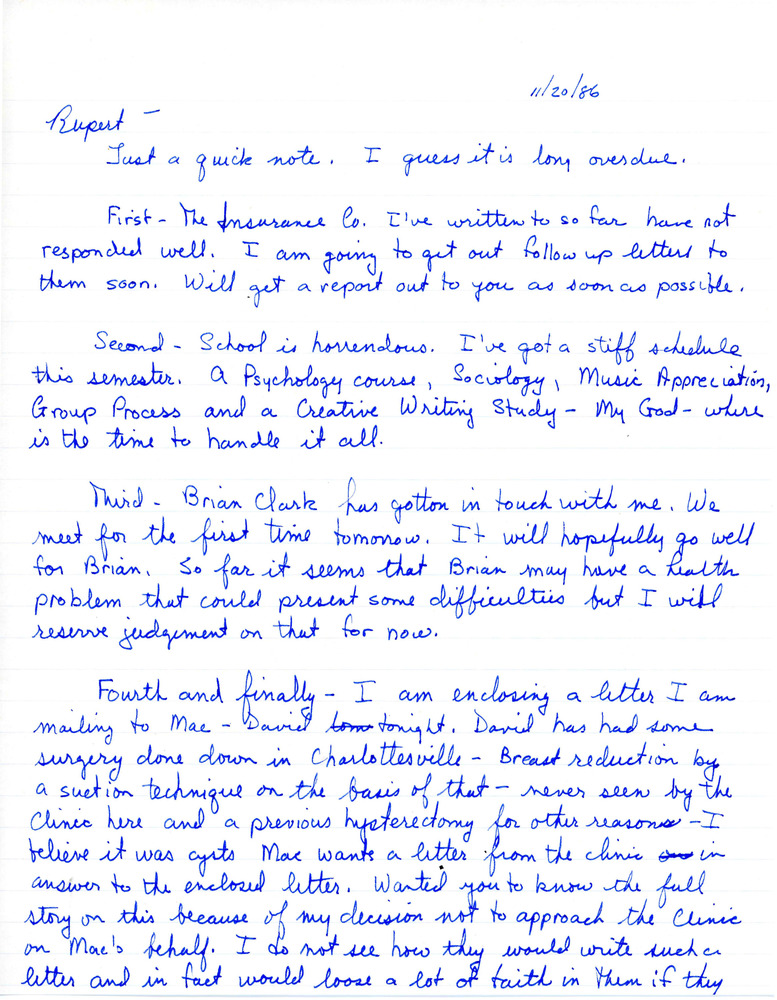 11/20/86
Rupert -
Just a quick note. I guess it is long overdue.
First - The Insurance Co. I've written to so far have not
responded well. I am going to get out follow up letters to
them soon. Will get a report out to you as soon as possible.
Second - School is horrendous. I've got a stiff schedule
this semester. A Psychology course, Sociology, Music Appreciation,
Group Process and a Creative Writing Study - My God - where
is the time to handle it all.
Third - Brian Clark has gotton in touch with me. We
meet for the first time tomorrow. It will hopefully go well
for Brian. So far it seems that Brian may have a health
problem that could present some difficulties but I will
reserve judgement on that for now.
Fourth and finally - I am enclosing a letter I am
mailing to Mac - David tonight. David has had some
surgery done down in Charlottesville - Breast reduction by
a suction technique on the basis of that - never seen by the
Clinic here and a previous hysterectomy for other reasons - I
believe it was cysts Mac wants a letter from the clinic in
answer to the enclosed letter. Wanted you to know the full
story on this because of my decision not to approach the Clinic
on Mac's behalf. I do not see how they would write such a
letter and in fact would loose a lot of faith in them if they